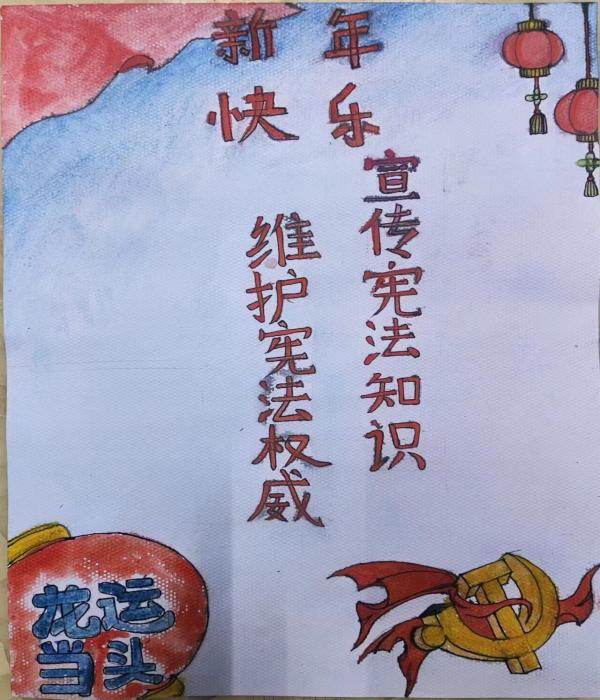 新年
快乐
宣传宪法知识
维护宪法权威
龙运
当头